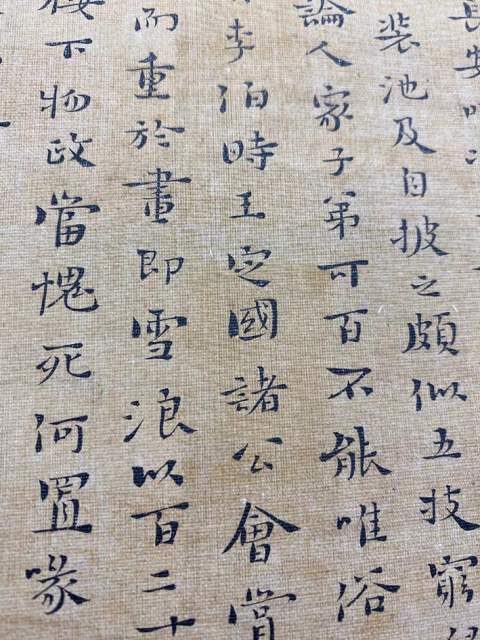 長安
裝池及自披之頗似五技窮
論人家子弟可百不能唯俗
李伯時王定國諸公會
而重於畫即雪浪以百二十
下物政當愧死何置喙